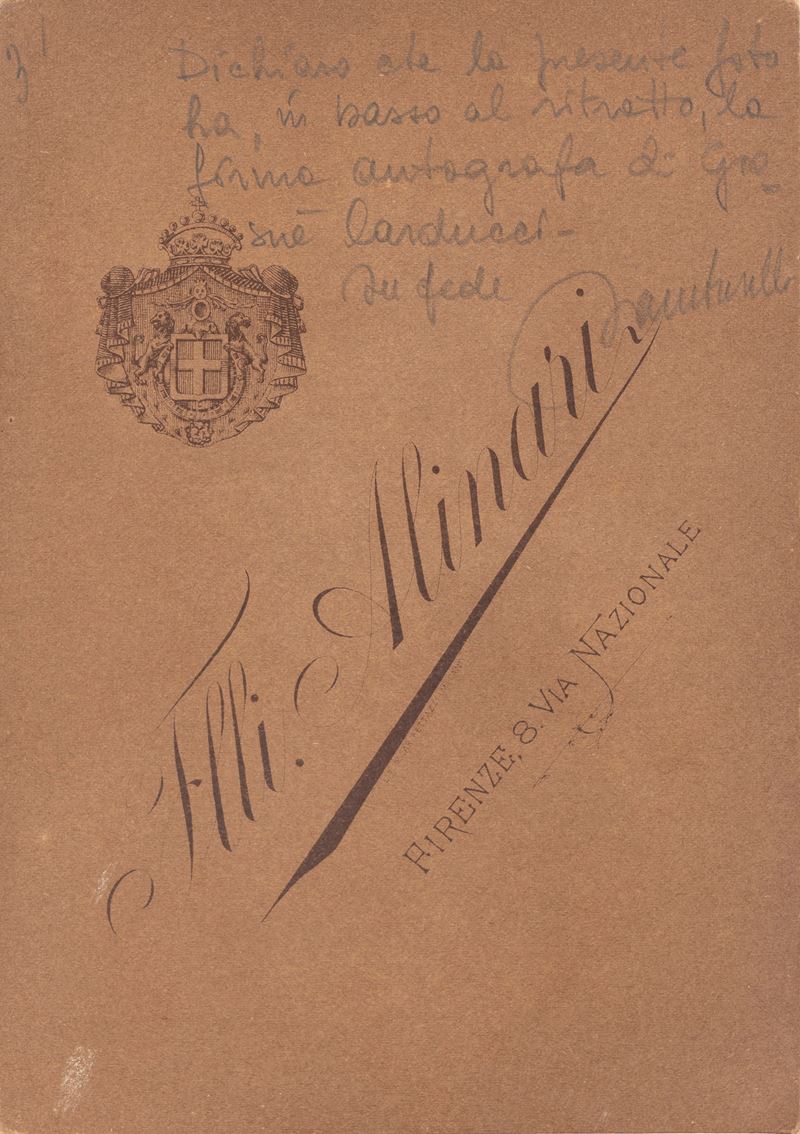 Dichiaro che la presente foto
ha, in basso al ritratto, la
firma autografa di Gio-
suè Carducci -
In fede
Flli. Alinari
FIRENZE, 8. VIA NAZIONALE